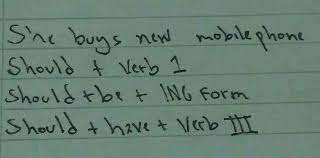 She buys new mobile phone
Should + Verb 1
Should + be + ING Form
Should + have + Verb III